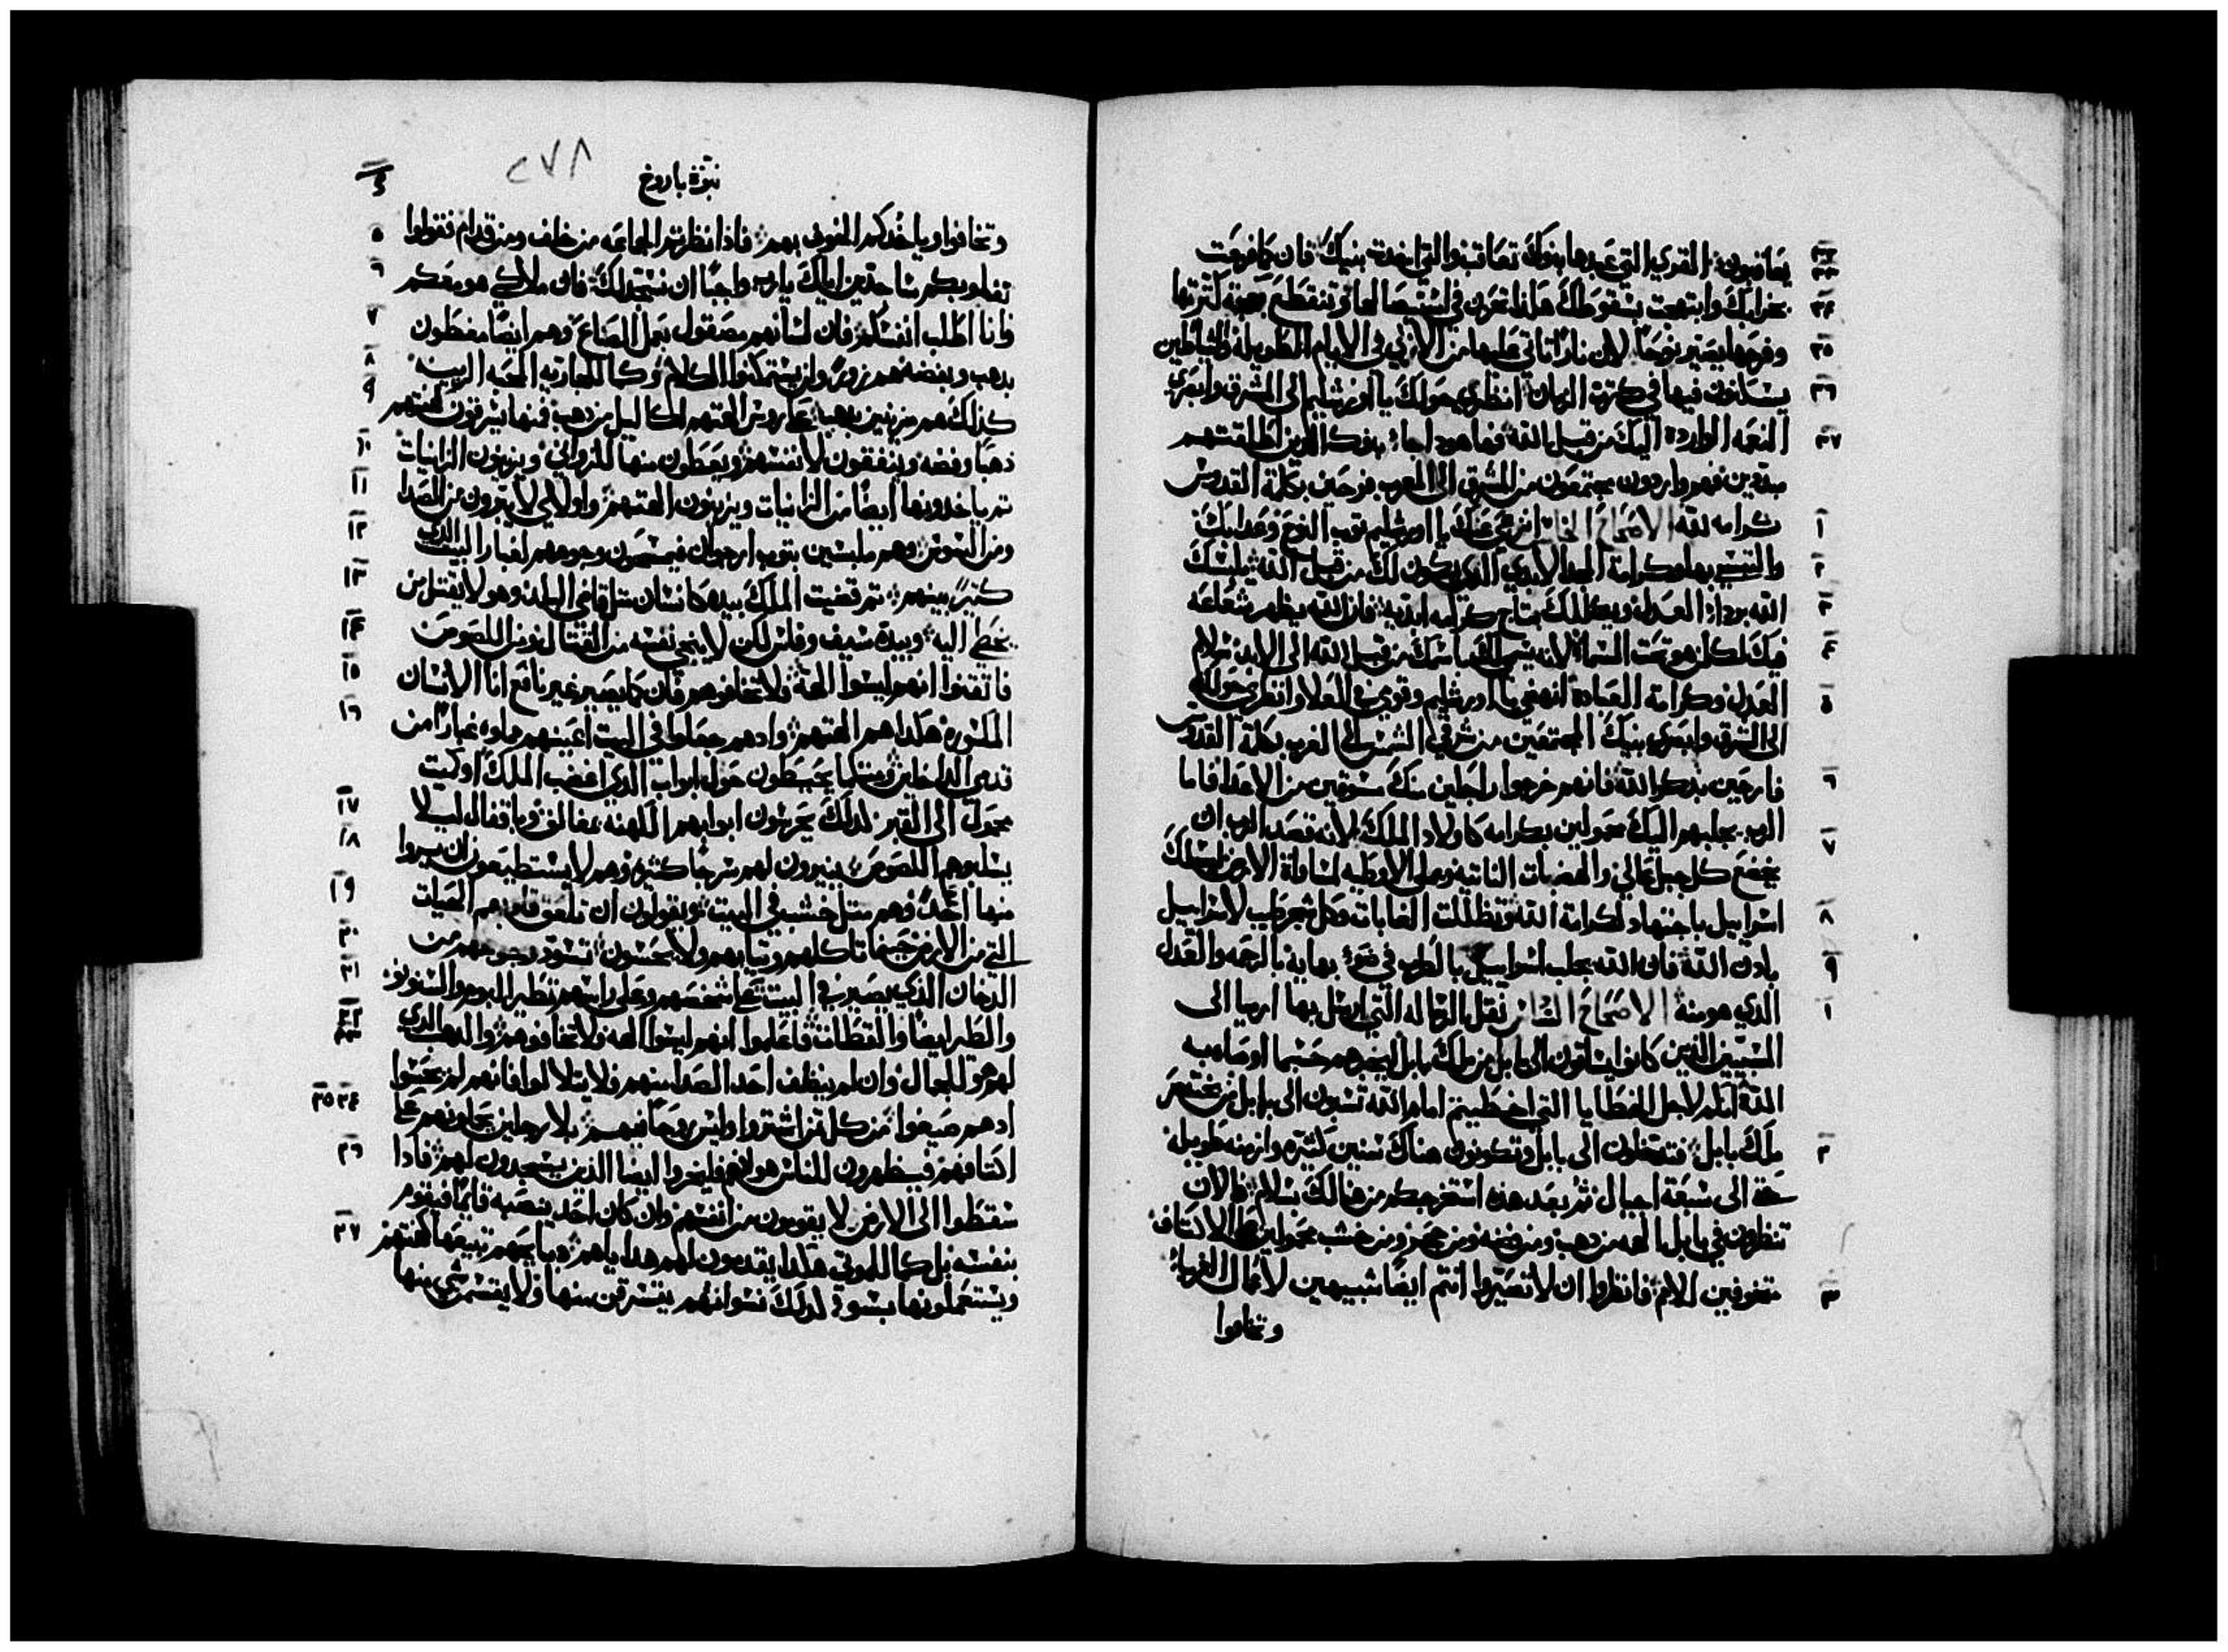 يعاقبون القري التي عبدها بنوك تعاقب والتي اخدت بنيك فان كما فرحت
بخرابك وابتهجت بسقوطك هكذا تحزن في استيصالها وتنقطع بهجة كثرتها
وفرحها يصير نوحا لان نارا تاتي عليها من الازلي في الايام الطويلة والشياطين
يسكنون فيها في كثرة الزمان انظري حولك يا اورشليم الى المشرق وابصري
النعمه الواردة اليك من قبل الله فها هودا جاء بنوك الدين اطلقتهم
مبددين فهم واردون مجتمعون من المشرق الى المغرب فرحين بكلمة القدوس
كرامه لله الاصحاح الخامس انزعي عنك يا اورشليم توب النوح وعدابك
والبسي بها وكرامة المجد الابدي الدي يكون لك من قبل الله يلبسك
الله برداء العدل ويكللك بتاج كرامه ابديه فان الله يظهر شعاعه
فيك لكل من هو تحت السماء لانه يسمي لك اسمك من قبل الله الى الابد سلام
العدل وكرامة العبادة انهضي يا اورشليم وقومي في العلا وانظري حولك
الى الشرق وابصري بنيك المجتمعين من شرقي الشمس الى الغرب بكلمة القدوس
فارحين بدكر الله فانهم خرجوا راجلين منك مسوقين من الاعدا فاما
الرب يجلبهم اليك محمولين بكرامه كاولاد الملك لانه قصد الرب ان
يخضع كل جبل عالي والهضبات الناتيه ويملي الاوطيه لمساواة الارض ليسلك
اسراييل باجتهاد لكرامة الله وتظللت الغابات وكل شجر طيب لاسراييل
بادن الله فان الله يجلب اسراييل بالطرب في ضوء بهايه بالرحمه والعدل
الدي هو منه الاصحاح السادس نقل الرساله التي ارسل بها ارميا الى
المسبيين الدين كانوا يساقون الى بابل من ملك بابل ليخبرهم حسبما اوصاه به
الله انكم لاجل الخطايا التي اخطيتم امام الله تسبون الى بابل من بختنصر
ملك بابل فتدخلون الى بابل وتكونون هناك سنين كتيره وازمنه طويله
حتى الى سبعة اجيال تم بعد هده استخرجكم من هنالك بسلام فالان
تنظرون في بابل الهه من دهب ومن فضه ومن حجر ومن خشب محمولين على الاكتاف
متخوفين الامم فانظروا ان لا تصيروا انتم ايضا شبيهين لاعمال الغرباء
وتخافوا
نبوة باروخ
٢٧٨
وتخافوا وياخدكم الخوف بهم فادا نظرتم الجماعه من خلف ومن قدام فقولوا
بقلوبكم ساجدين اياك يا رب واجبا ان نسجد لك فان ملاكي هو معكم
وانا اطلب انفسكم فان لسانهم مصقول بعمل الصناع وهم ايضا مغطون
بدهب وبفضه هم زور ولن يستمكنوا الكلام وكما للجاريه المحبه الزينه
كدلك هم مزينين بدهب على رووس الهتهم اكاليل من دهب فمنها يسرقون كهنتهم
دهبا وفضه وينفقون لانفسهم ويعطون منها للزواني ويزينون الزانيات
تم ياخدونها ايضا من الزانيات ويزينون الهتهم واولاي لا يبرون من الصدا
ومن السوس وهم ملبسين بتوب ارجوان فيمسحون وجوههم لغبار البيت الدي
كتير بينهم تم قضيب الملك بيده كانسان مثل قاضي البلد وهو لا يقتل من
يخطي اليه وبيده سيف وفاس لكن لا ينجي نفسه من القتال ومن اللصوص
فاتقنوا انهم ليسوا الهة فلا تخافوهم فان كما يصير غير نافع انا الانسان
المكسور هكدا هم الهتهم وادهم جعلوا في البيت اعينهم مملوه غبارا من
قدمي الداخلين وكما يحيطون حول ابواب الدي اغضب الملك او كميت
محمول الى القبر كدلك يحرسون ابوابهم الكهنه بمغاليق وباقفال ليلا
يسلبوهم اللصوص ينيرون لهم سرجا كتيره وهم لا يستطيعون ان يبروا
منها احدا وهم مثل خشبه في البيت ويقولون ان تلعق قلوبهم الحيات
التي من الارض حينما تاكلهم وتيابهم ولا يحسون تسود وجوههم من
الدخان الدي يصير في البيت على شخصهم وعلى راسهم تطير البوم والسنونو
والطير ايضا والقطات فاعلموا انهم ليسوا الهه فلا تخافوهم والدهب الدي
لهم هو للجمال وان لم ينظف احد الصدا منهم فلا يتلالوا فانهم لم يحسوا
ادهم صيغوا من كل تمن اشتروا وليس روحا فيهم بلا رجلين يحملونهم على
اكتافهم فيظهرون للناس هوانهم فليخزوا ايضا الدين يسجدون لهم فادا
سقطوا الى الارض لا يقومون من انفسهم وان كان احد ينصبه قايما فيقوم
بنفسه بل كما للموتى هكدا يقدمون لهم هداياهم دبايحهم تبيعها كهنتهم
ويستعملونها بسوء كدلك نسوانهم يتسرقن منها ولا يقسم شي منها